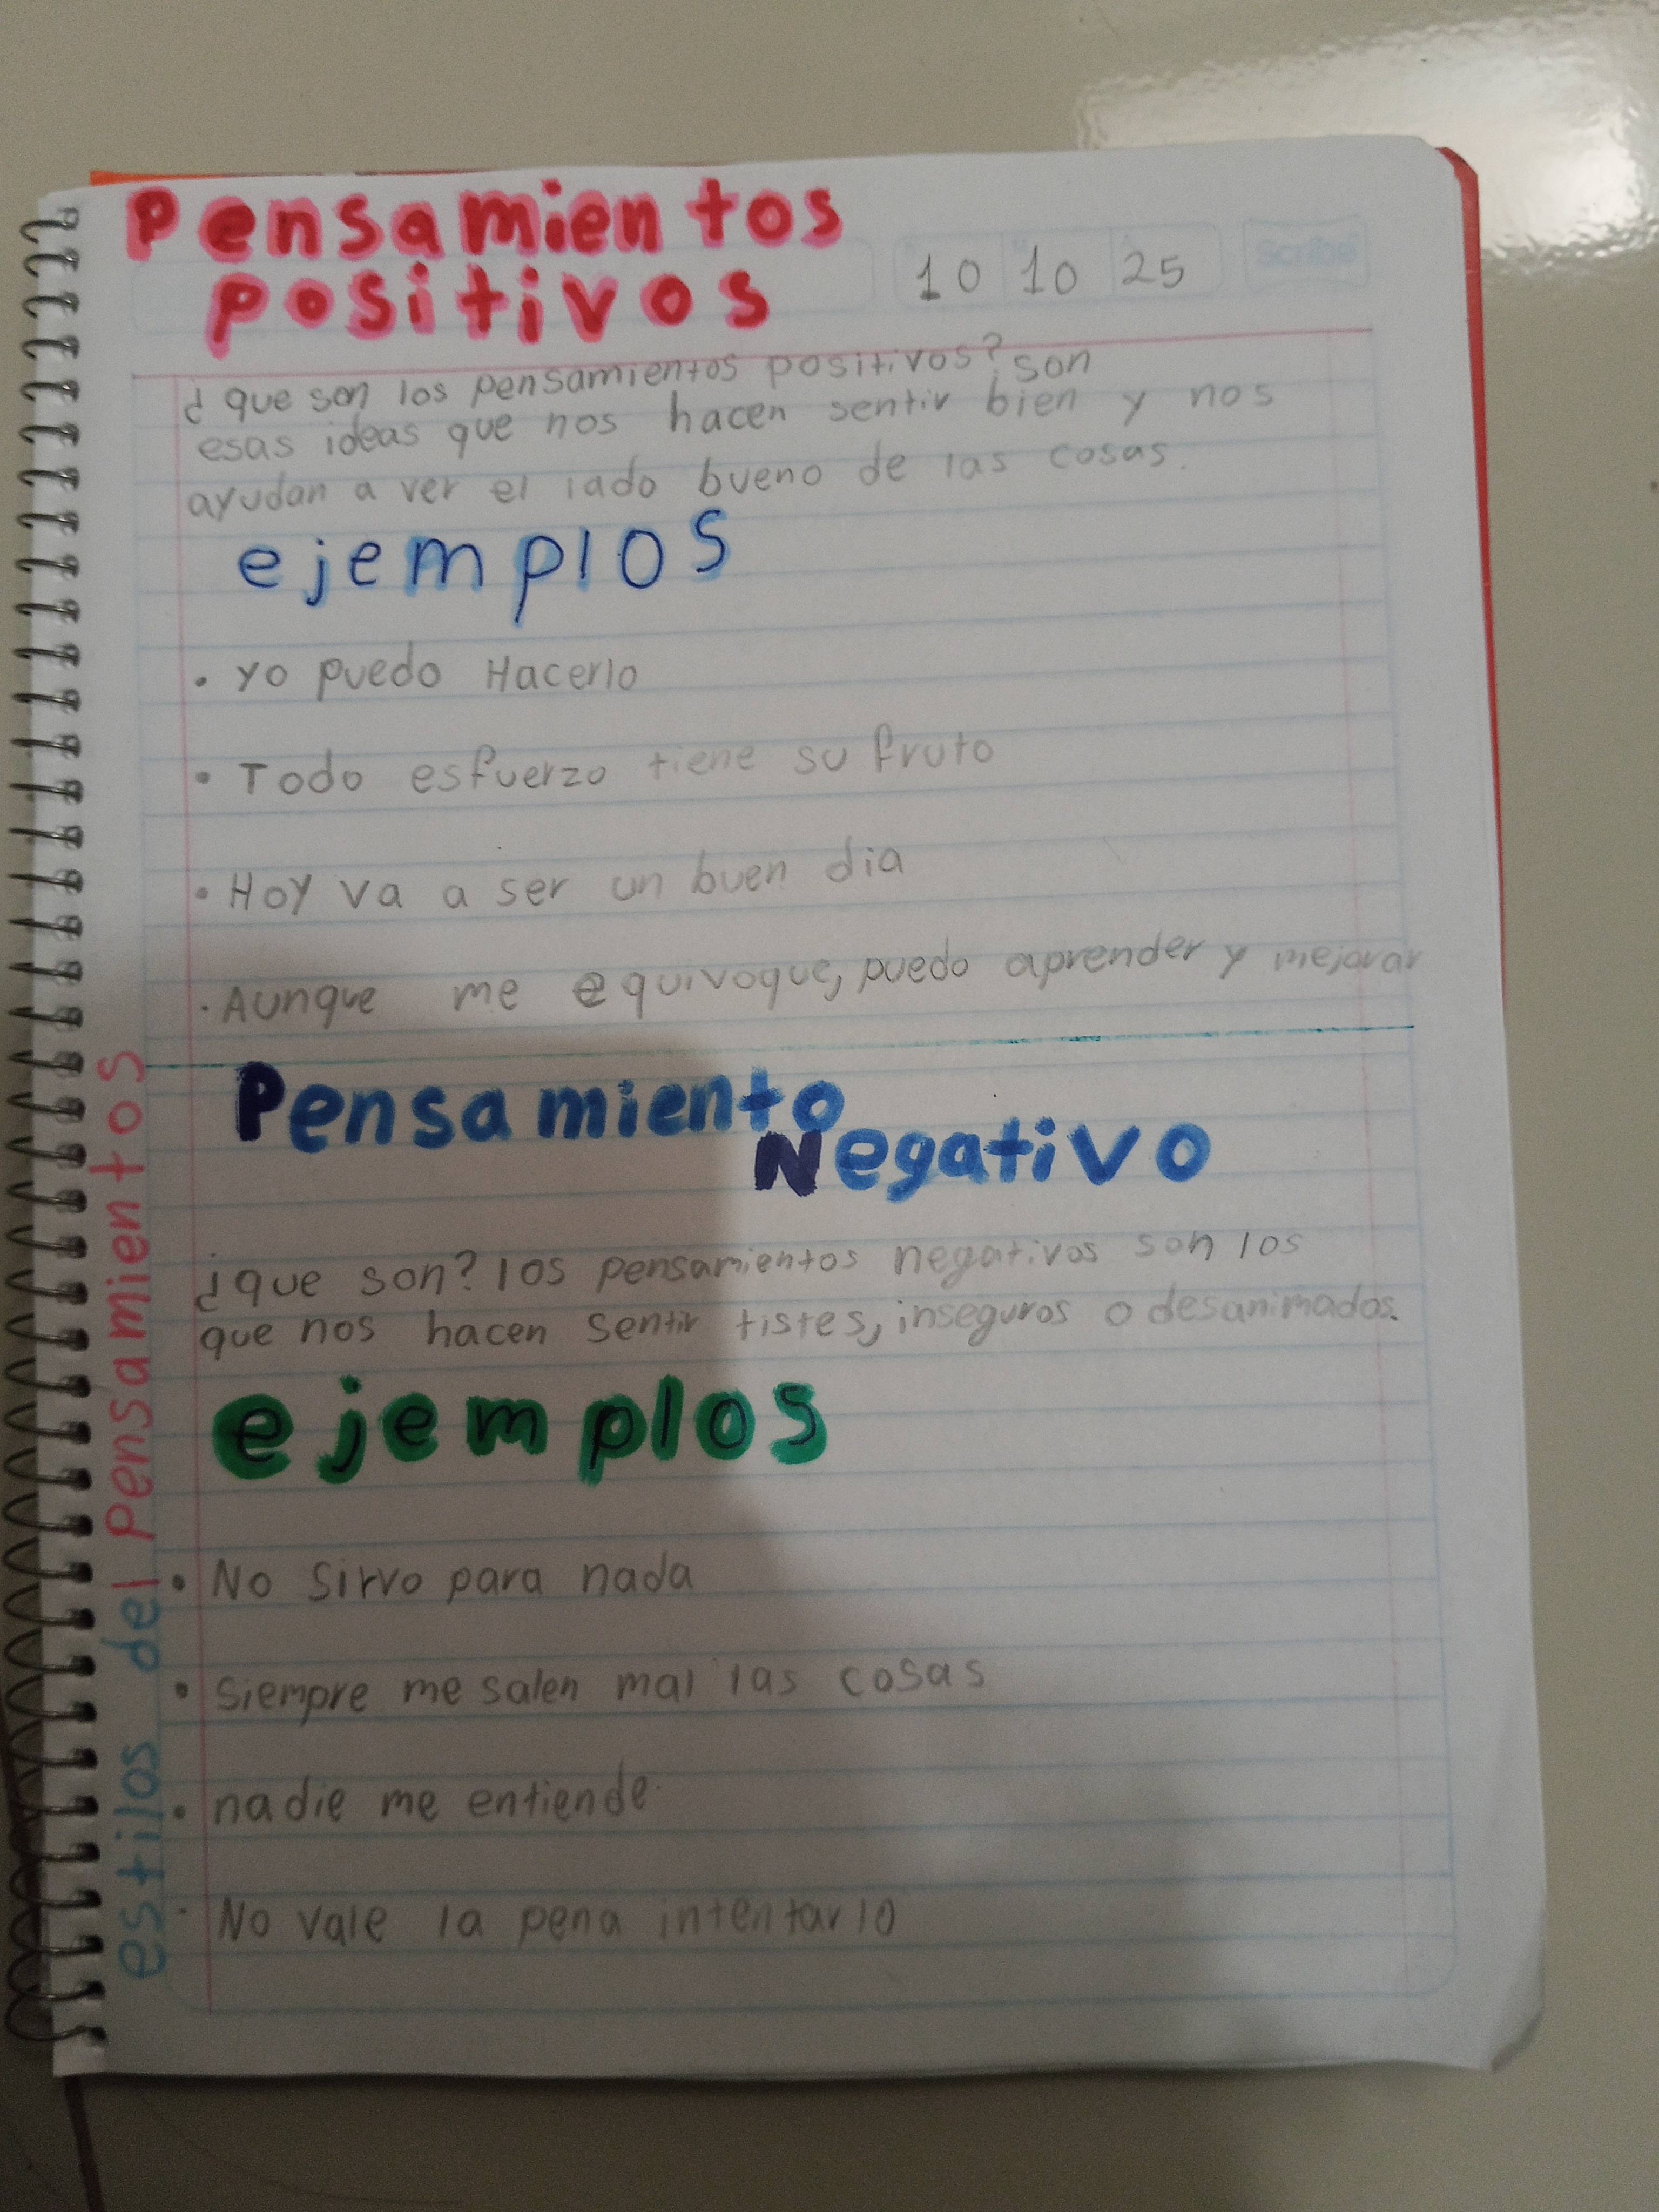 Pensamientos
positivos
10 10 25
Scribe
¿que son los pensamientos positivos? son
esas ideas que nos hacen sentir bien y nos
ayudan a ver el lado bueno de las cosas.
ejemplos
• Yo puedo Hacerlo
• Todo esfuerzo tiene su fruto
• Hoy va a ser un buen dia
• Aunque me equivoque, puedo aprender y mejorar
Pensamiento
Negativo
¿que son? los pensamientos negativos son los
que nos hacen sentir tistes, inseguros o desanimados.
ejemplos
• No sirvo para nada
• Siempre me salen mal las cosas
• nadie me entiende.
• No vale la pena intentarlo
estilos del Pensamientos